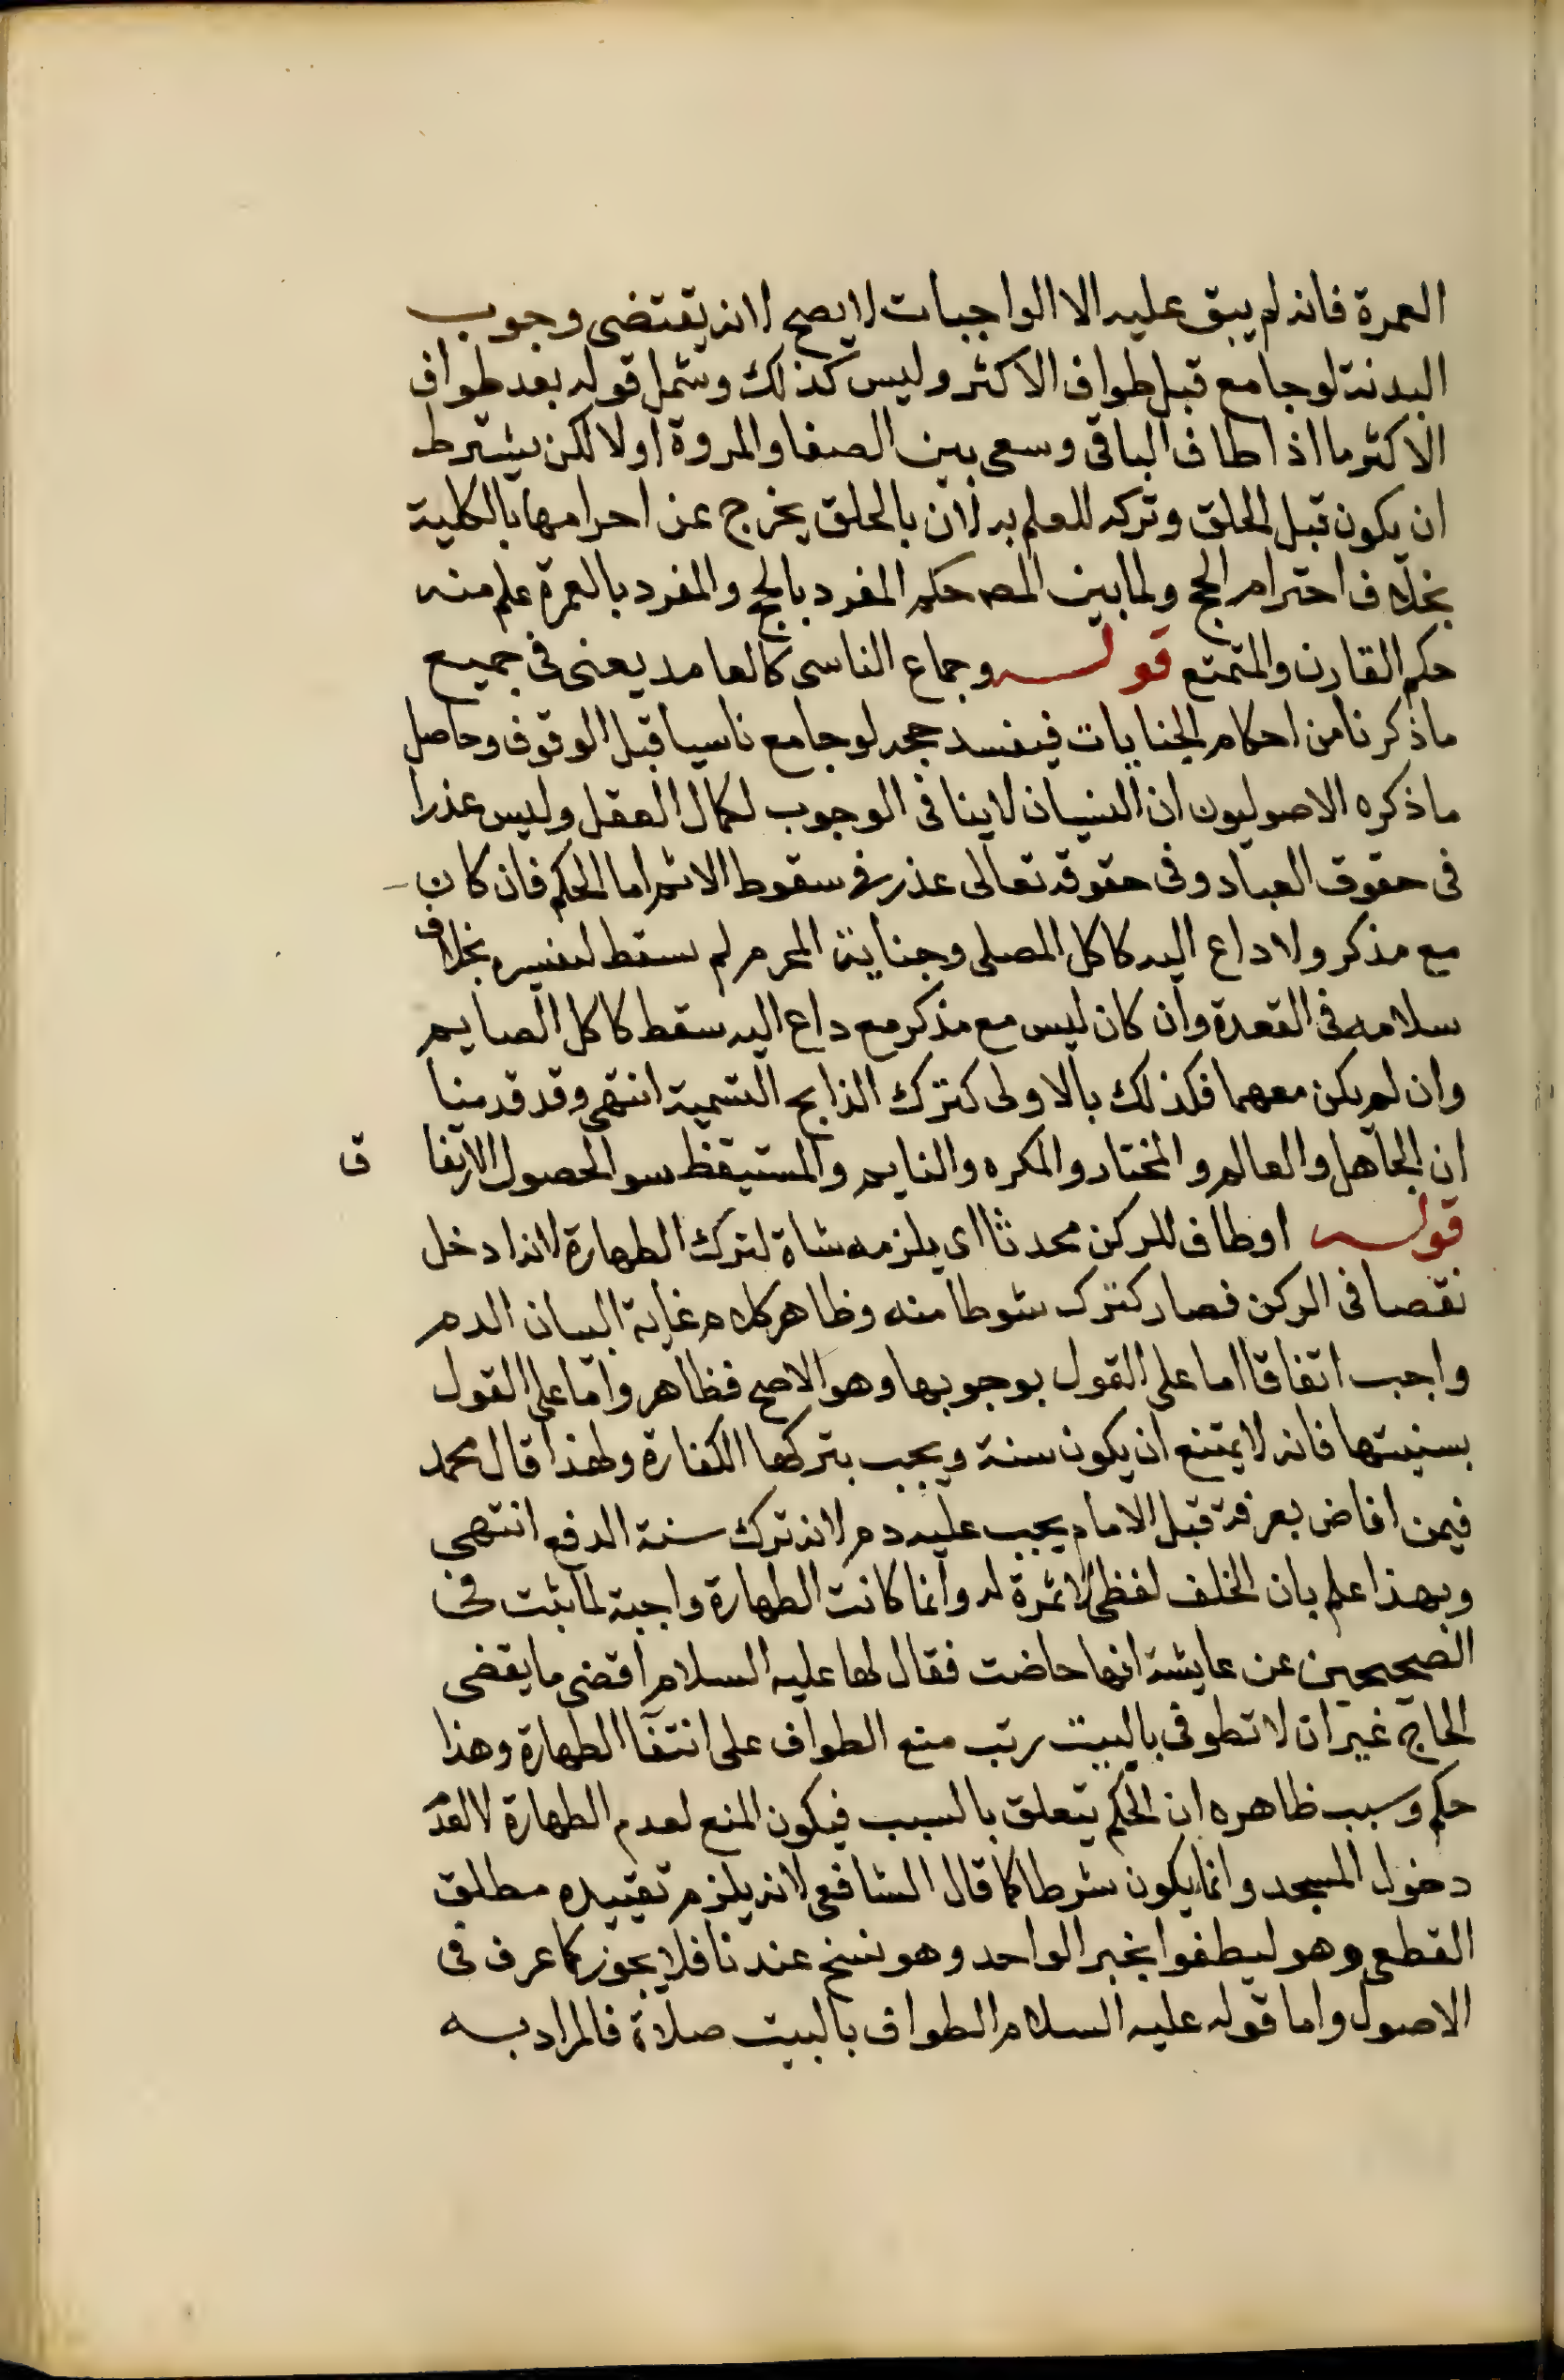 العمرة فانه لم يبق عليه الا الواجبات لا يصح لانه يقتضى وجوب
البدنة لو جامع قبل طواف الاكثر وليس كذلك وشمل قوله بعد طواف
الاكثر ما اذا طاف الباقى وسعى بين الصفا والمروة اولا لكن يشترط
ان يكون قبل الحلق وتركه للعلم به لان بالحلق يخرج عن احرامها بالكلية
بخلاف احترام الحج ولما بين المص حكم المفرد بالحج والمفرد بالعمرة علم منه
حكم القارن والمتمتع قوله وجماع الناسى كالعامد يعنى فى جميع
ماذكرنا من احكام الجنايات فيفسد حجه لو جامع ناسيا قبل الوقوف وحاصل
ماذكره الاصوليون ان النسيان لا ينافى الوجوب لكمال العقل وليس عذرا
فى حقوق العباد وفى حقوقه تعالى عذر فى سقوط الاثم اما الحكم فان كان
مع مذكر ولا داع اليه كاكل المصلى وجناية المحرم لم يسقط لتقصيره بخلاف
سلامه فى القعدة وان كان ليس مع مذكر مع داع اليه سقط كاكل الصايم
وان لم يكن معهما فكذلك بالاولى كترك الذابح التسمية انتهى وقد قدمنا
ان الجاهل والعالم والمختار والمكره والنايم والمستيقظ سوا لحصول الارتفاق
قوله اوطاف للركن محدثا اى يلزمه شاة لترك الطهارة لانه ادخل
نقصا فى الركن فصار كترك شوطا منه وظاهر كلام غاية البيان الدم
واجب اتفاقا اما على القول بوجوبها وهو الاصح فظاهر واما على القول
بسنيتها فانه لا يمتنع ان يكون سنة ويجب بتركها الكفارة ولهذا قال محمد
فيمن افاض بعرفة قبل الامام يجب عليه دم لانه ترك سنة الدفع انتهى
وبهذا علم بان الخلف لفظى لا ثمرة له وانما كانت الطهارة واجبة لما ثبت فى
الصحيحين عن عايشة انها حاضت فقال لها عليه السلام اقضى ما يقضى
الحاج غير ان لا تطوفى بالبيت رتب منع الطواف على انتفاا الطهارة وهذا
حكم وسبب ظاهره ان الحكم يتعلق بالسبب فيكون المنع لعدم الطهارة لا لعدم
دخول المسجد وانما يكون شرطا كما قال الشافعى لانه يلزم تقييده مطلق
القطعى وهو ليطفوا بخبر الواحد وهو نسخ عندنا فلا يجوز كما عرف فى
الاصول واما قوله عليه السلام الطواف بالبيت صلاة فالمراد به